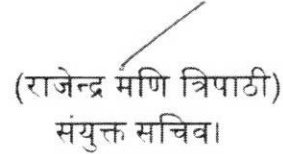 (राजेन्द्र मणि त्रिपाठी)
संयुक्त सचिव।